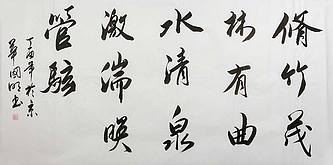 脩竹茂
林有曲
水清泉
激湍映
管絃
丁酉年於京
華國明書